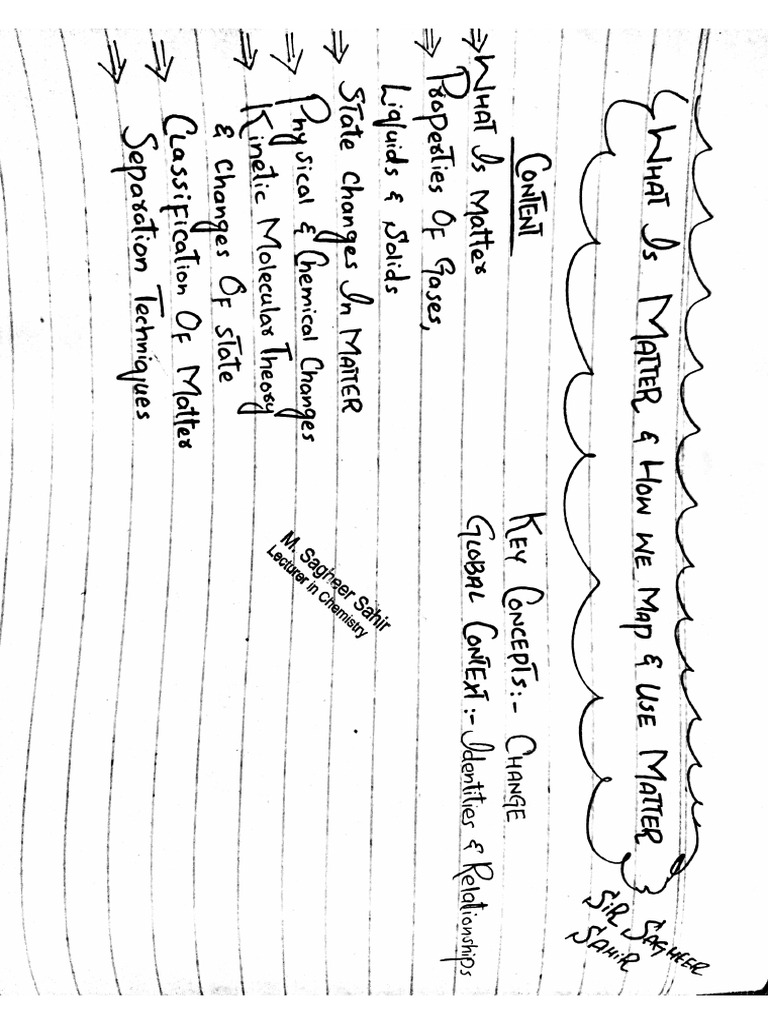 WHAT IS MATTER & HOW WE MAP & USE MATTER
SIR SAGHEER
SAHIR
CONTENT
KEY CONCEPTS:- CHANGE
GLOBAL CONTEXT:- Identities & Relationships
⇒ WHAT IS Matter
⇒ Properties OF Gases,
Liquids & Solids
⇒ State Changes In MATTER
⇒ Physical & Chemical Changes
⇒ Kinetic Molecular Theory
& Changes OF State
⇒ Classification OF Matter
⇒ Separation Techniques
M. Sagheer Sahir
Lecturer in Chemistry